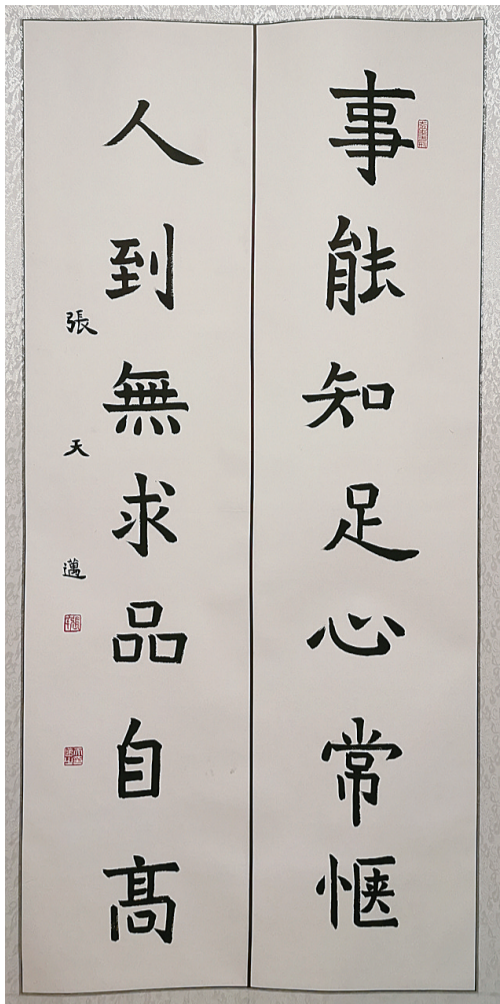 事能知足心常惬
人到無求品自髙
張天邁